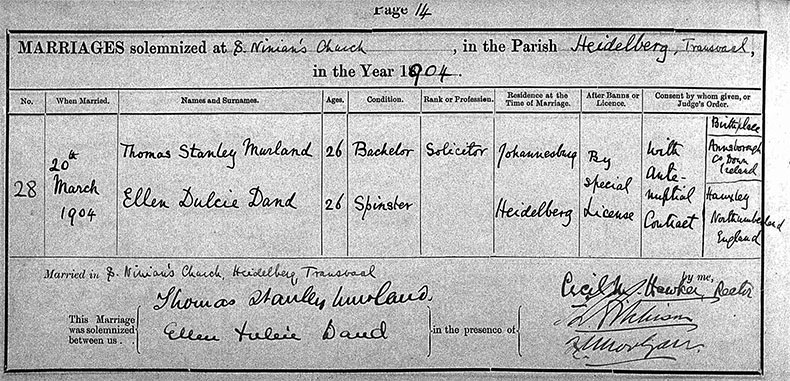 Page 14
MARRIAGES solemnized at S. Ninian's Church, in the Parish Heidelberg, Transvaal,
in the Year 1904.
No. When Married. Names and Surnames. Ages. Condition. Rank or Profession. Residence at the Time of Marriage. After Banns or Licence. Consent by whom given, or Judge's Order.
Birthplace
28
20th
March
1904
Thomas Stanley Murland 26 Bachelor Solicitor Johannesburg
Ellen Dulcie Dand 26 Spinster Heidelberg
By
special
License
With
ante-
nuptial
Contract
Annsborough
Co. Down
Ireland
Northumberland
England
Married in S. Ninian's Church, Heidelberg, Transvaal
by me,
Cecil M. Hawker, Rector
This Marriage
was solemnized
between us.
Thomas Stanley Murland.
Ellen Dulcie Dand
in the presence of